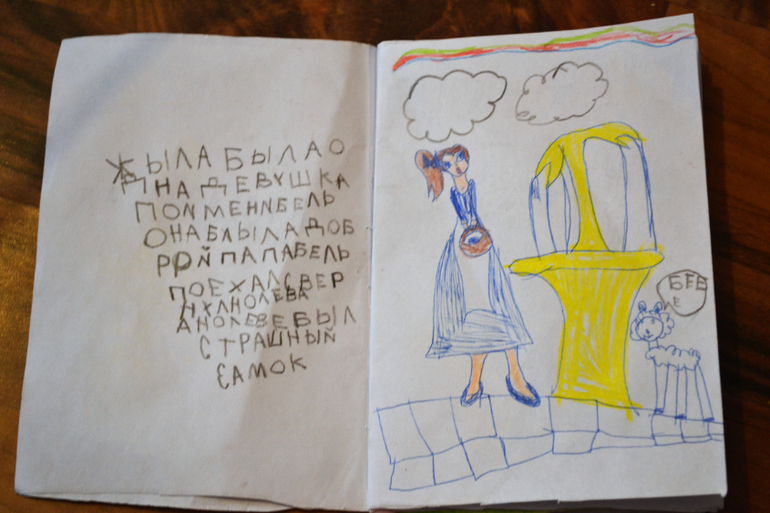 ЖЫЛА БЫЛА О
ДНА ДЕВУШКА
ПОИМЕНИБЕЛЬ
ОНАБЛЫЛАДОБ
РОЙ ПАПАБЕЛЬ
ПОЕХАЛСВЕР
НХЛНОЛЕВА
АНОЛЕВЕБЫЛ
СТРАШНЫЙ
ЄАМОК
БЕВ
Е